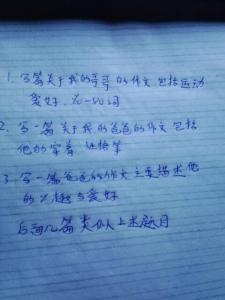 1. 写篇关于我的哥哥的作文,包括运动
爱好.
2. 写一篇关于我的爸爸的作文包括
他的穿着
3. 写一篇爸爸的作文主要描述他
的兴趣与爱好
后面几篇类似上述题目